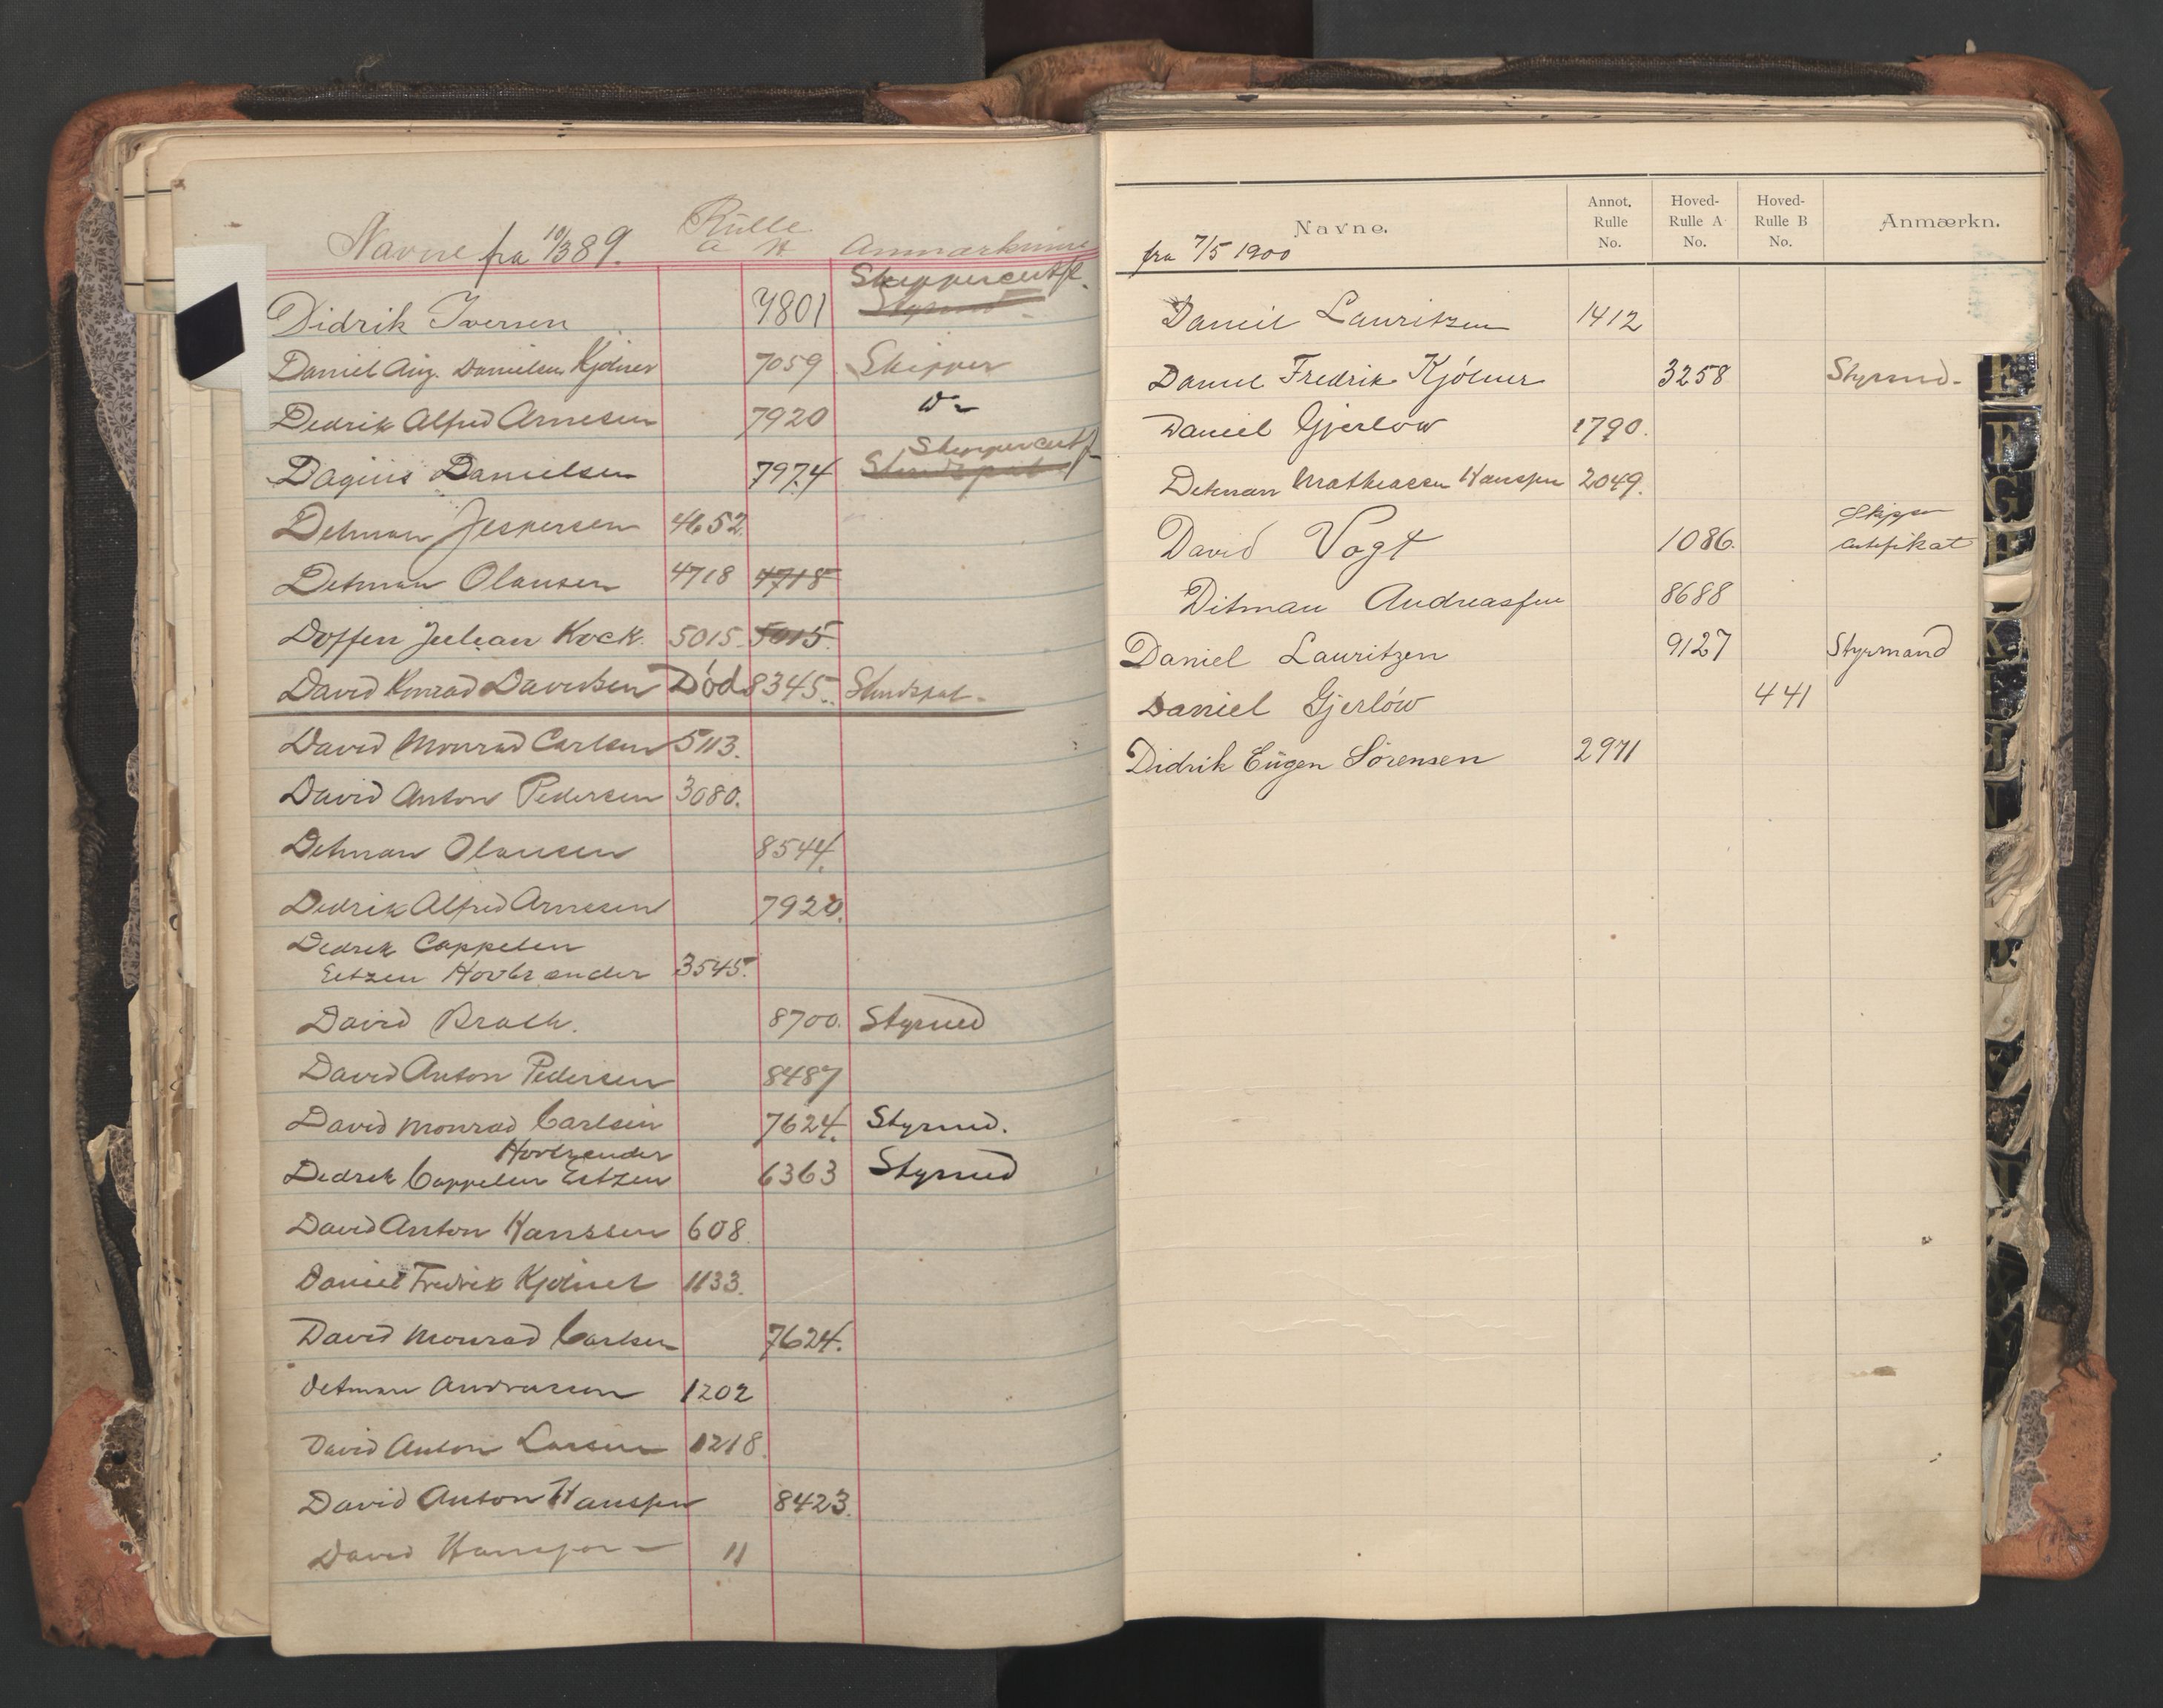 Navne fra 10/3 89. Rulle a H Anmærkning
Didrik Iversen 7801 Skippercertfk. Styrmd
Daniel Aug. Danielsen Kjølner 7059 Skipper
Dedrik Alfred Arnesen 7920 D~
Dagius Danielsen 7974 Skippercertf
Detman Jespersen 4652.
Detman Olausen 4718 4718
Doffen Julian Kock. 5015. 5015.
David Konrad Davidsen Død 8345. Studspat.
David Monrad Carlsen 5113.
David Anton Pedersen 3080.
Detman Olausen 8544.
Dedrik Alfred Arnesen 7920.
Dedrik Cappelen
Eitzen Hovbrænder 3545.
David Brath. 8700. Styrmd
David Anton Pedersen 8487
David Monrad Carlsen 7624. Styrmd.
Hovbrænder
Dedrik Cappelen Eitzen 6363 Styrmd
David Anton Hanssen 608.
Daniel Fredrik Kjølner 1133.
David Monrad Carlsen 7624.
Detman Andreasen 1202
David Anton Larsen 1218.
David Anton Hanssen 8423.
David Hanssen 11
Navne. Annot. Rulle No. Hoved-Rulle A No. Hoved-Rulle B No. Anmærkn.
fra 7/5 1900
Daniel Lauritzen 1412
Daniel Fredrik Kjølner 3258 Styrmd.
Daniel Gjerløw 1790.
Detman Mathiassen Hanssen 2049.
David Vogt 1086. Skipper
certifikat
Ditman Andreassen 8688
Daniel Lauritzen 9127 Styrmand
Daniel Gjerløw 441
Didrik Eugen Sørensen 2971
E
F
G
K
N